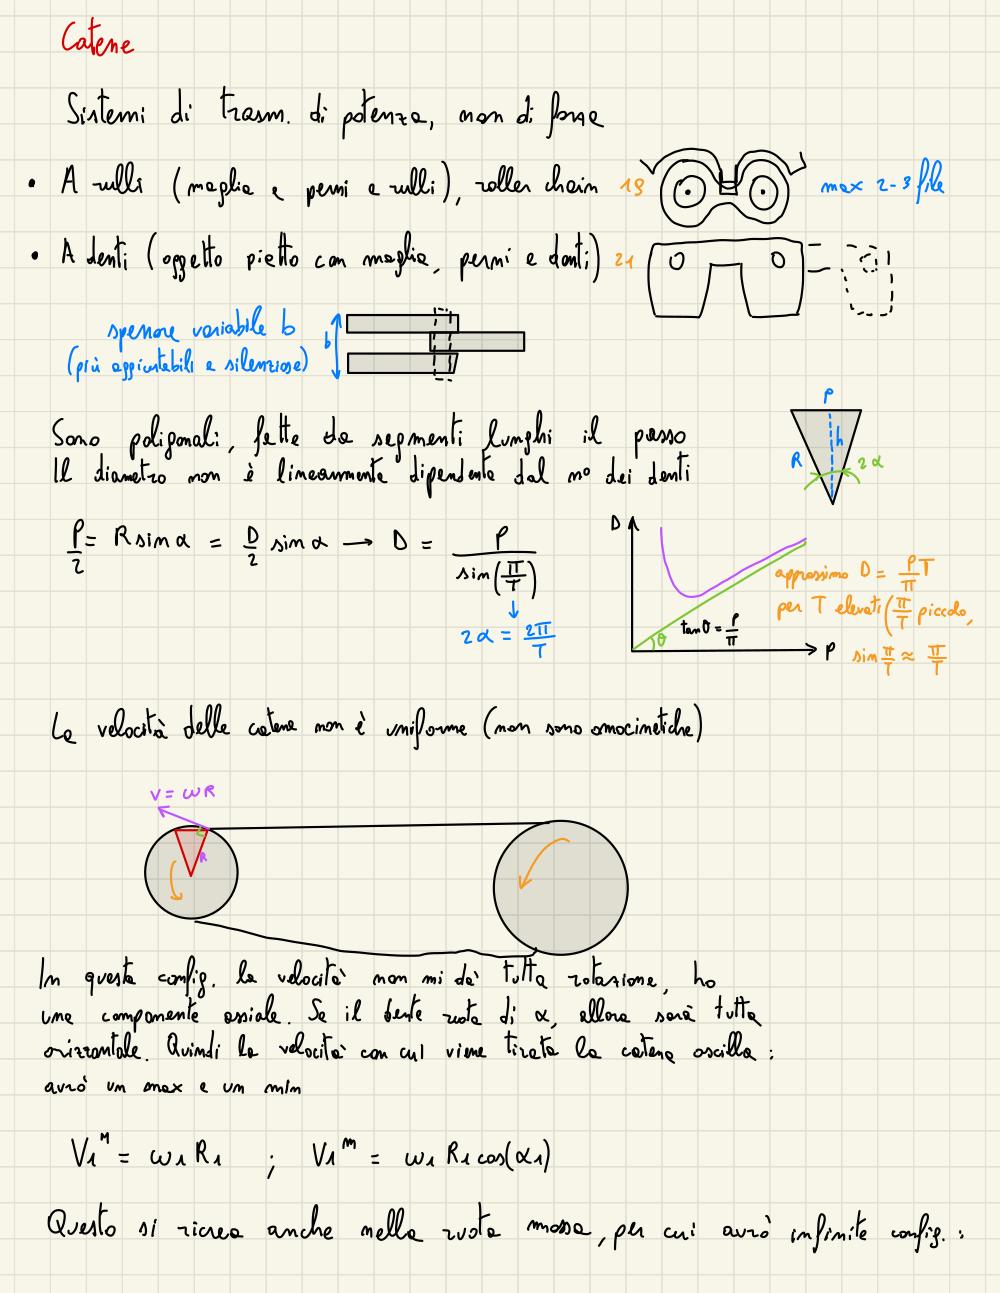 Catene
Sistemi di trasm. di potenza, non di forza
• A rulli (maglia e perni e rulli), roller chain 19 max 2-3 file
• A denti (oggetto piatto con maglia, perni e denti) 21
spessore variabile b
(più aggiustabili e silenziose)
b
P
h
R
2α
Sono poligonali, fatte da segmenti lunghi il passo
Il diametro non è linearmente dipendente dal n° dei denti
P/2 = R sin α = D/2 sin α → D = P / sin(π/T)
↓
2α = 2π/T
D
θ
tanθ = P/π
P
approssimo D = P/π T
per T elevati (π/T piccolo,
sin π/T ≈ π/T
La velocità delle catene non è uniforme (non sono omocinetiche)
V = ωR
R
In questa config. la velocità non mi dà tutta rotazione, ho
una componente assiale. Se il dente ruota di α, allora sarà tutta
orizzontale. Quindi la velocità con cui viene tirata la catena oscilla:
avrò un max e un min
V₁ᴹ = ω₁ R₁ ; V₁ᵐ = ω₁ R₁ cos(α₁)
Questo si ricrea anche nella ruota mossa, per cui avrò infinite config.: